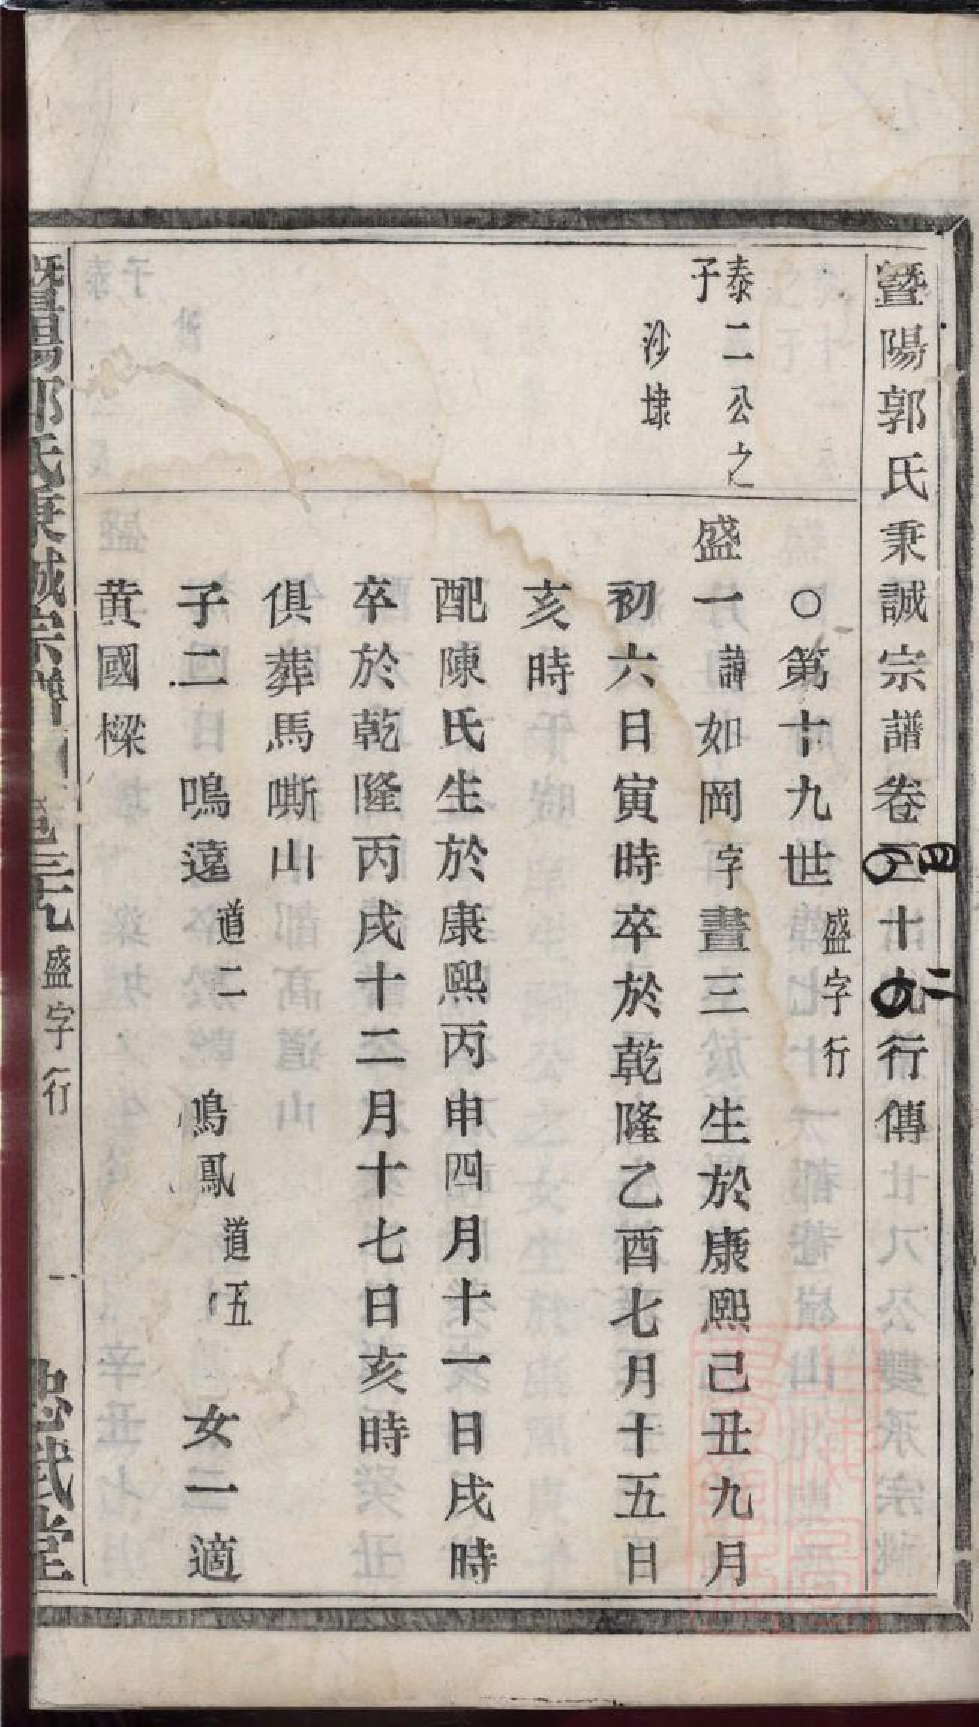 暨陽郭氏秉誠宗譜卷三十九行傳
四
二
○第十九世盛字行
泰二公之
子
沙埭
盛一諱如岡字畫三 生於康熙己丑九月
初六日寅時卒於乾隆乙酉七月十五日
亥時
配陳氏生於康熙丙申四月十一日戌時
卒於乾隆丙戌十二月十七日亥時
俱葬馬嘶山
子二 鳴遠道二 鳴鳳道五 女一適
黃國樑
暨陽郭氏秉誠宗譜 卷三十九 盛字行 一 忠武堂